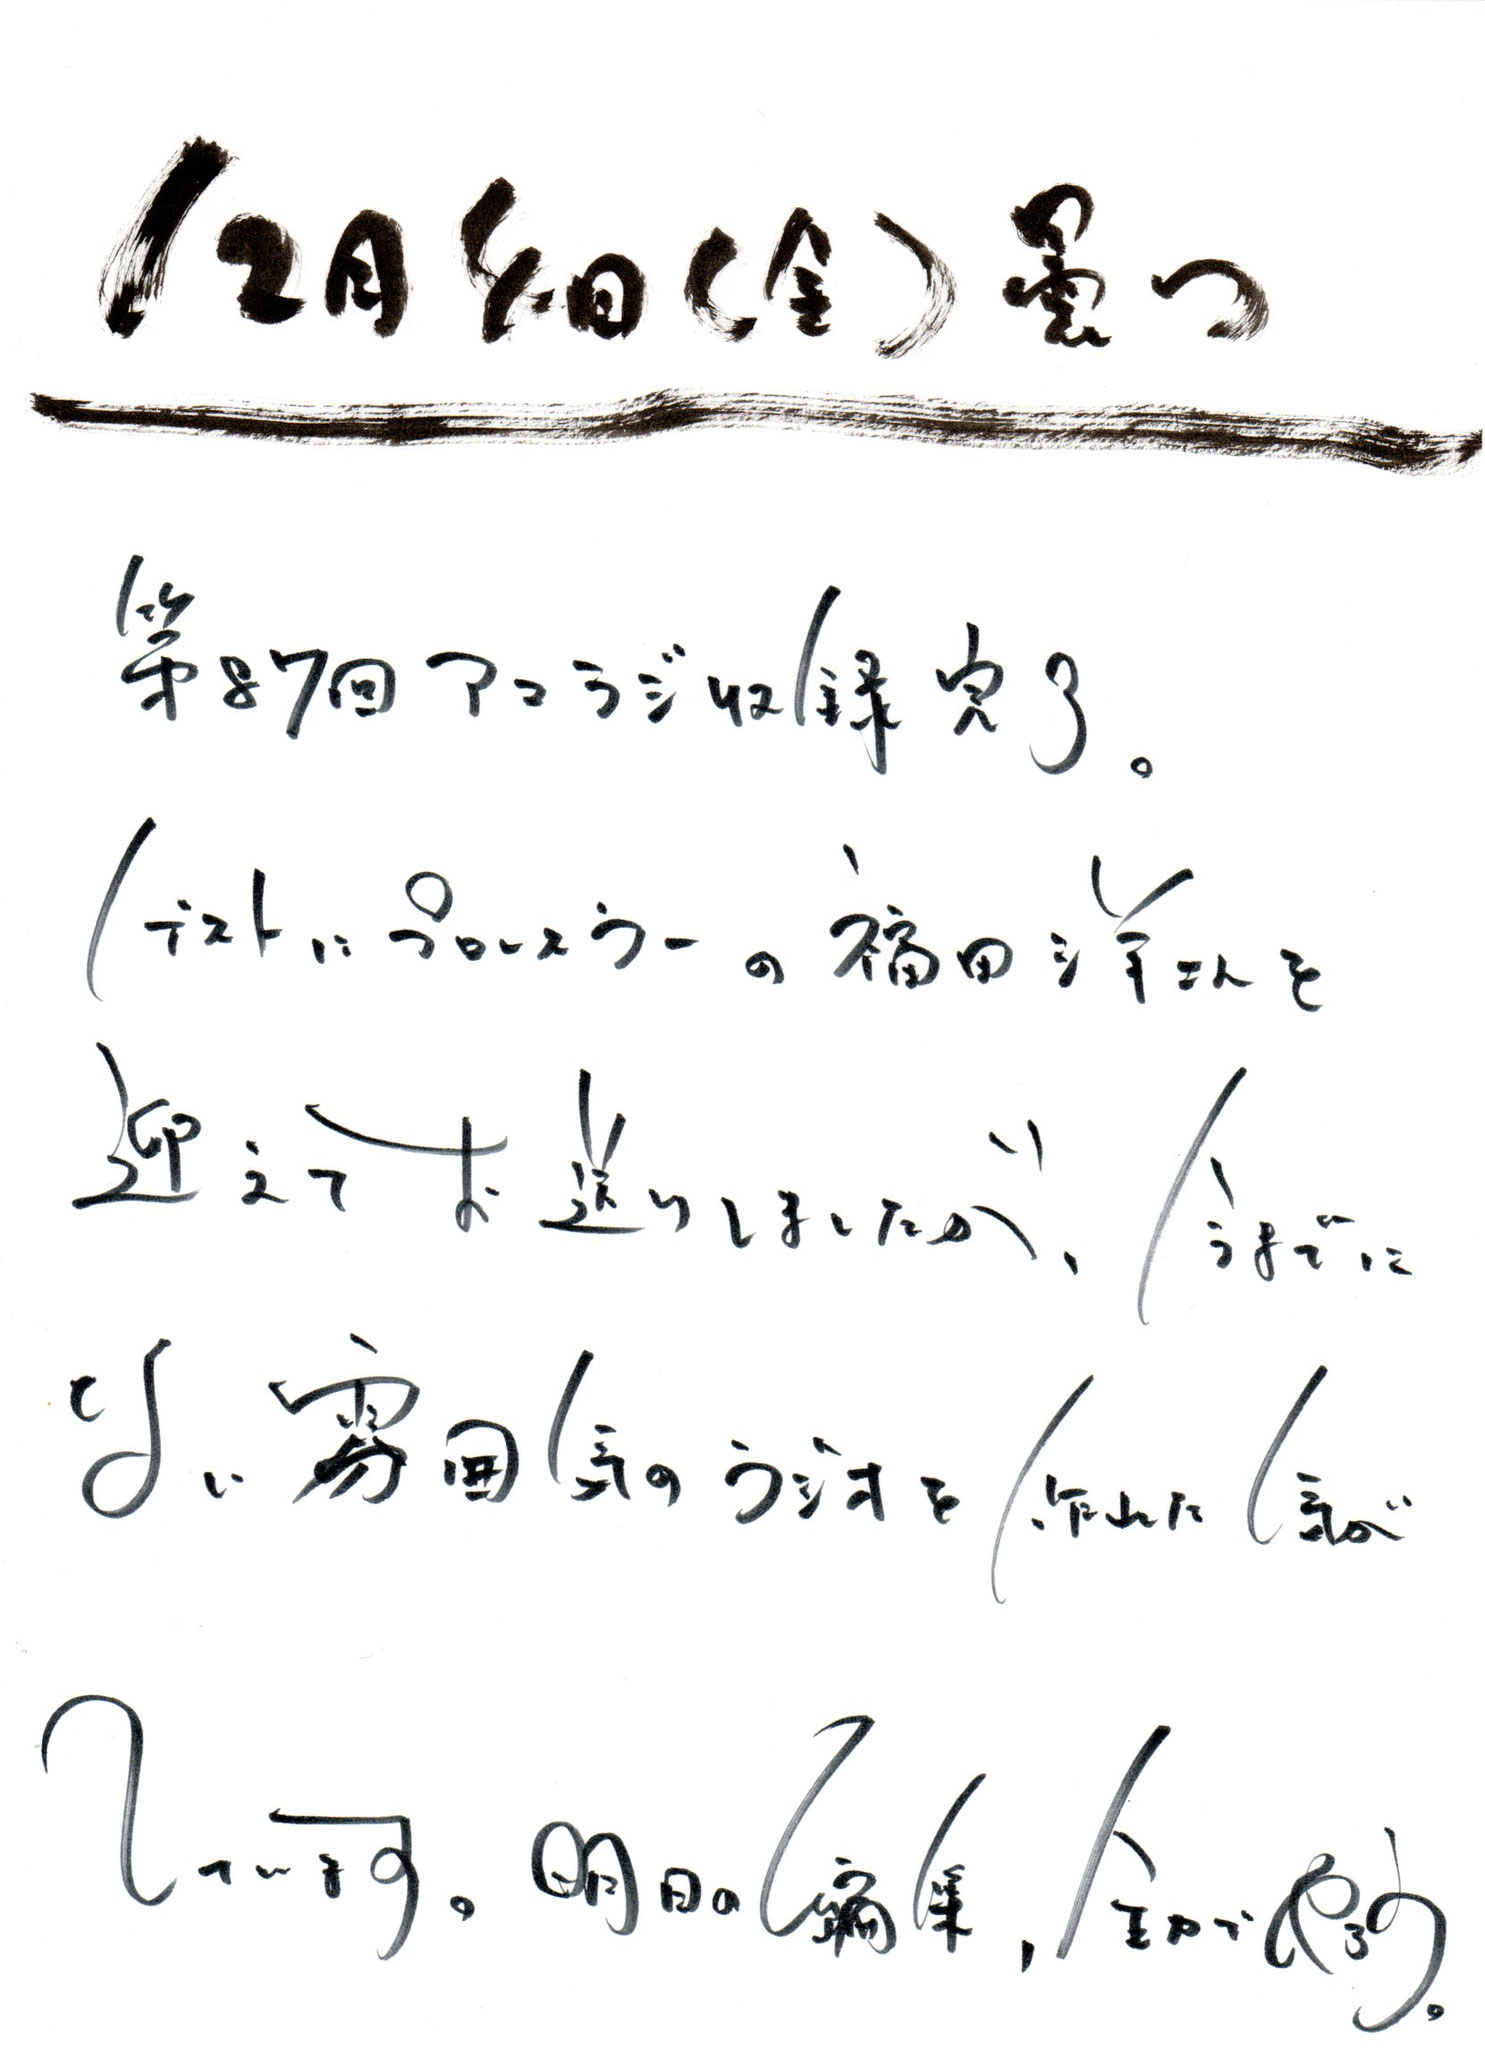 12月4日(金)曇り
第87回アコラジ収録完了。
ゲストにプロレスラーの福田洋さんを
迎えてお送りしましたが、今までに
ない雰囲気のラジオを作れた気が
しています。明日の編集、全力でやろう。